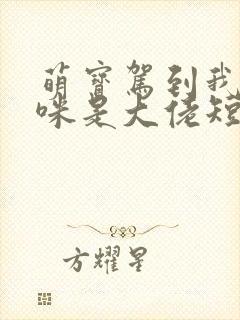 萌宝驾到我
咪是大佬短
方耀星